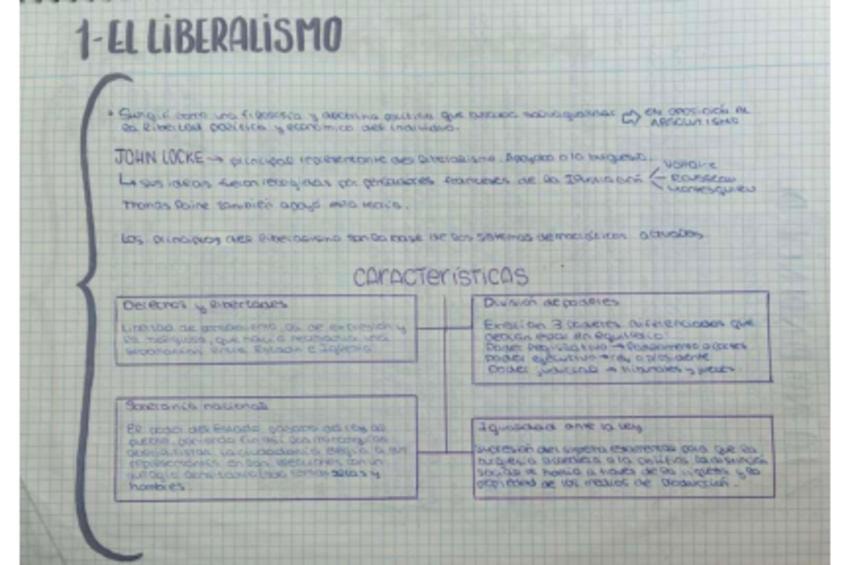 1-EL LIBERALISMO
• Surgió como una filosofía y doctrina política que busca salvaguardar ⇨ EN OPOSICIÓN AL
la libertad política y económica del individuo. ABSOLUTISMO
JOHN LOCKE → principal representante del liberalismo. Apoyaba a la burguesía. Voltaire
↳ sus ideas fueron recogidas por pensadores franceses de la Ilustración Rousseau
Montesquieu
Thomas Paine también apoyó esta teoría.
Los principios del liberalismo son la base de los sistemas democráticos actuales
CARACTERÍSTICAS
Derechos y libertades
Libertad de pensamiento, de expresión y
religiosa, que hacía necesaria una
separación entre Estado e Iglesia.
División de poderes
Existían 3 poderes diferenciados que
debían estar en equilibrio:
Poder legislativo → Parlamento o cortes
poder ejecutivo → rey o presidente
Poder judicial → tribunales y jueces
Soberanía nacional
El poder del Estado pasaba del rey al
pueblo, poniendo fin así a las monarquías
absolutistas. La ciudadanía elegía a sus
representantes en las elecciones con un
sufragio
hombres.
Igualdad ante la ley
Supresión del sistema estamental para que la
burguesía accediera a la política. La distinción
social se hacía a través de la riqueza y la
propiedad de los medios de producción.